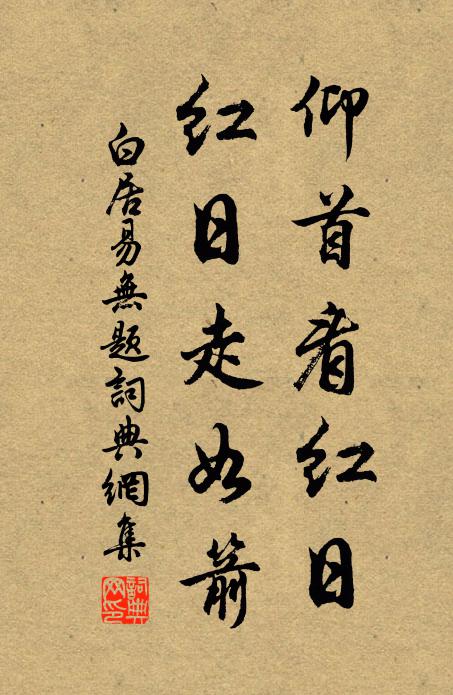 仰首看红日
红日走如箭
白居易無題詞典網集
詞典网印